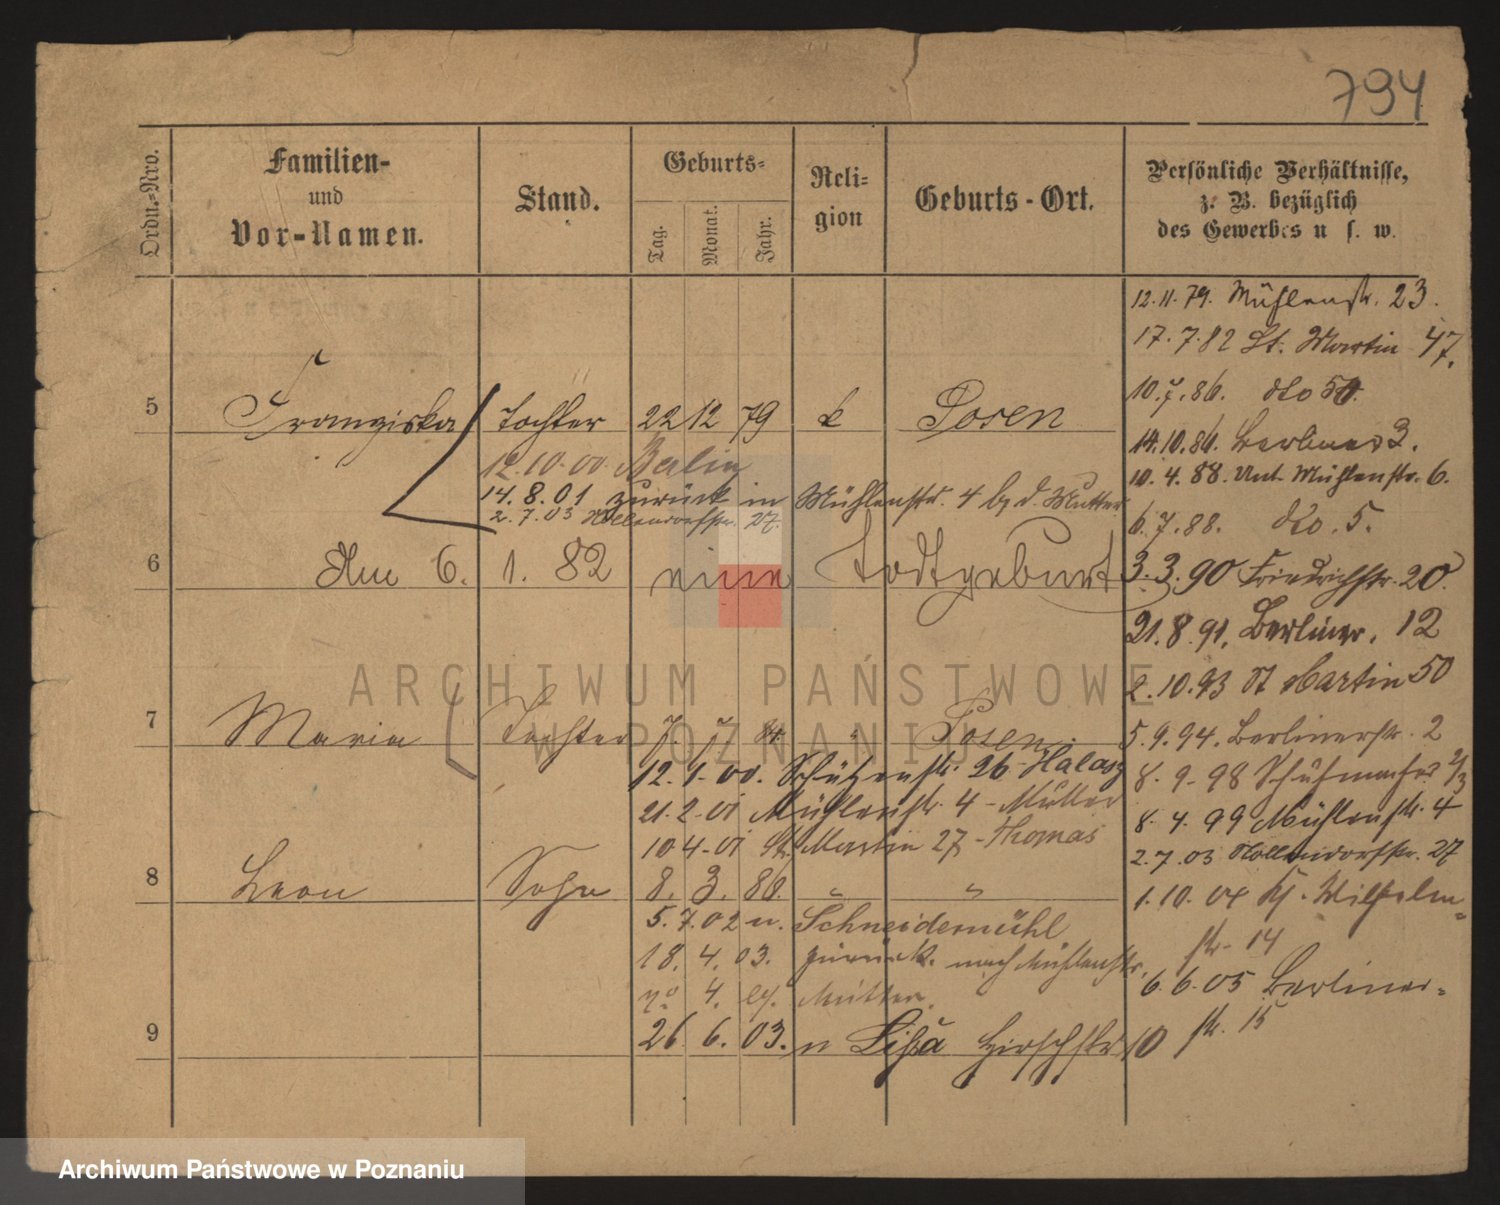 794
Ordn.-Nro.
Familien-
und
Vor-Namen.
Stand.
Geburts-
Tag.
Monat.
Jahr.
Reli-
gion
Geburts-Ort.
Persönliche Verhältnisse,
z. B. bezüglich
des Gewerbes u s. w.
12.11.79. Mühlenstr. 23.
17.7.82 St. Martin 47.
10.7.86. dto 50.
14.10.86. Berliner 3.
10.4.88. Unt. Mühlenstr. 6.
6.7.88. dto. 5.
3.3.90 Friedrichstr. 20.
21.8.91. Berliner. 12
2.10.93 St Martin 50
5.9.94. Berlinerstr. 2
8.9.98 Schuhmacher 2/3
8.4.99 Mühlenstr. 4
2.7.03 Nollendorfstr. 27
1.10.04 Wilhelm-
str. 14
6.6.05 Berliner-
str. 15
5 Franziska Tochter 22 12 79 k Posen
12.10.00 Berlin
14.8.01 zurück in Mühlenstr. 4 b. d. Mutter
2.7.03 Nollendorfstr. 27.
6 Am 6. 1. 82 eine Todtgeburt
7 Maria Tochter 7. 7. 84. " Posen.
12.1.00. Schützenstr. 26 Halasz
21.2.01 Mühlenstr. 4 - Mutter
10.4.01 St. Martin 27 - Thomas
8 Leon Sohn 8. 3. 86. " "
5.7.02 n. Schneidemühl
18. 4. 03. zurück. nach Mühlenstr.
No 4. Mutter.
9 26 6. 03. n Lissa Hirschstr 10
ARCHIWUM PAŃSTWOWE
W POZNANIU
Archiwum Państwowe w Poznaniu